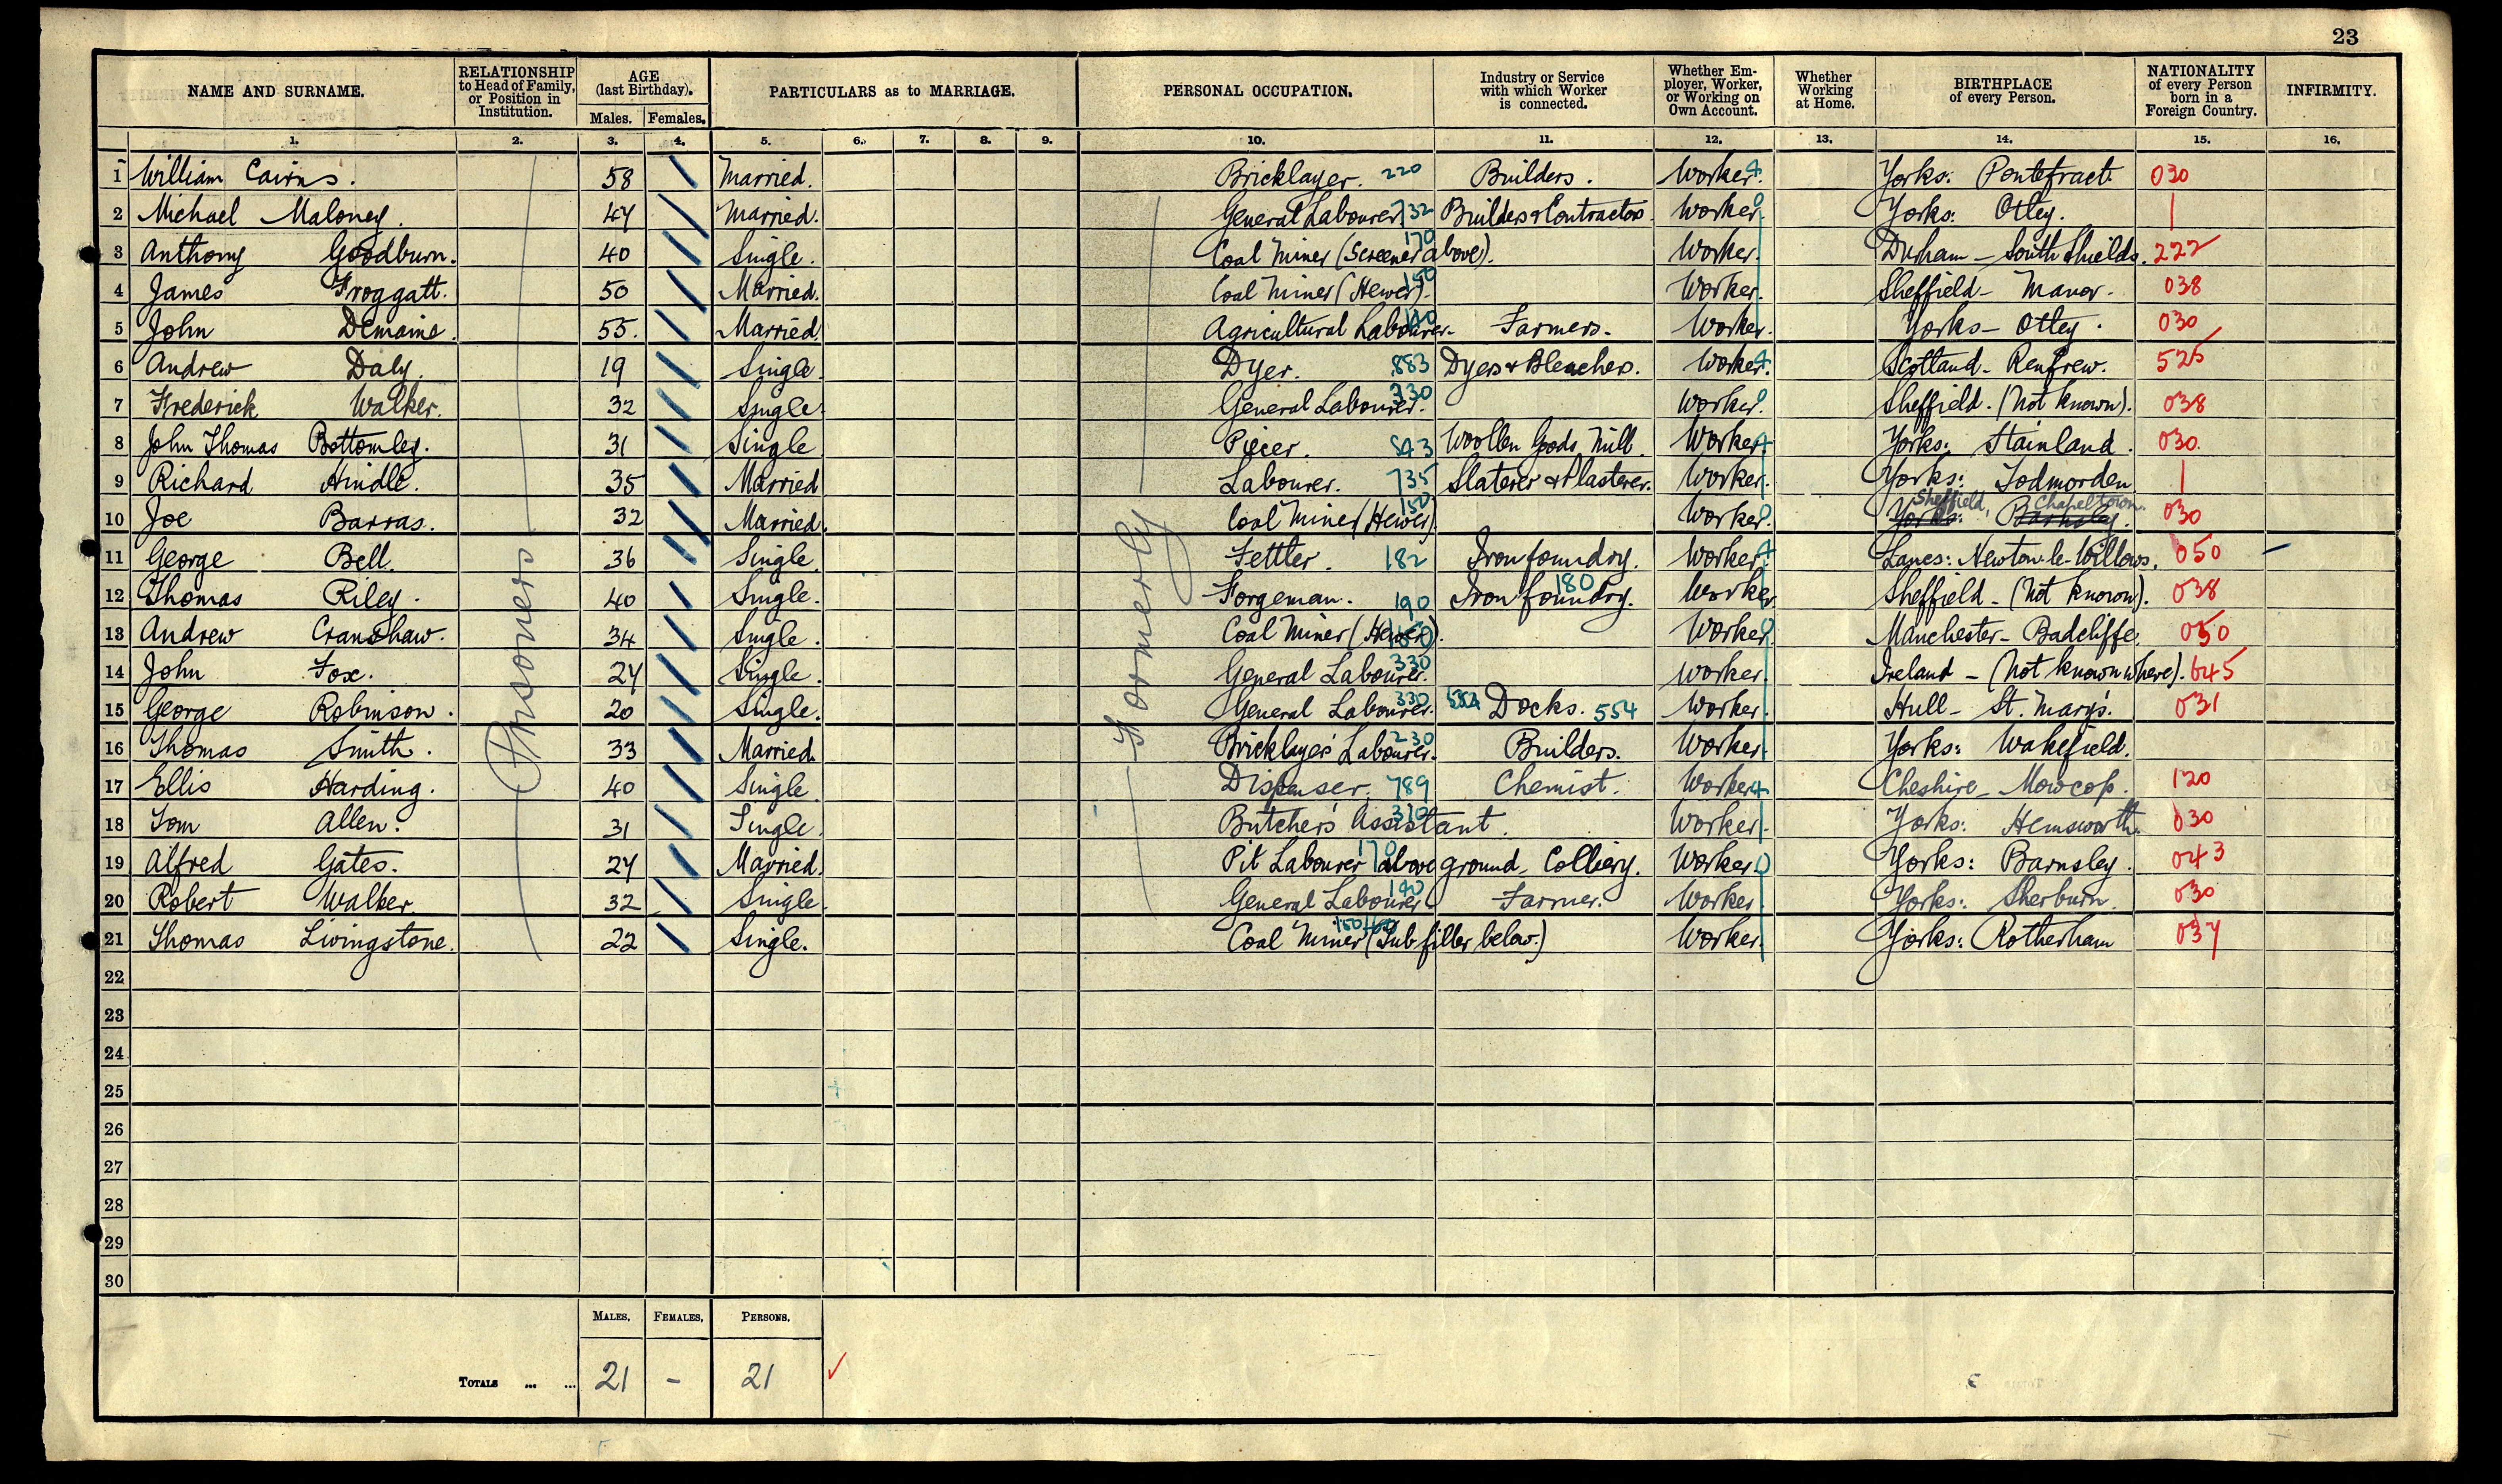 23
NAME AND SURNAME. RELATIONSHIP to Head of Family, or Position in Institution. AGE (last Birthday). Males. Females. PARTICULARS as to MARRIAGE. PERSONAL OCCUPATION. Industry or Service with which Worker is connected. Whether Employer, Worker, or Working on Own Account. Whether Working at Home. BIRTHPLACE of every Person. NATIONALITY of every Person born in a Foreign Country. INFIRMITY.
1. 2. 3. 4. 5. 6. 7. 8. 9. 10. 11. 12. 13. 14. 15. 16.
Prisoners
Formerly
1 William Cairns. 58 Married. Bricklayer. 220 Builders. Worker. Yorks: Pontefract. 030
2 Michael Maloney. 47 Married. General Labourer 732 Builders & Contractors. Worker. Yorks: Otley.
3 Anthony Goodburn. 40 Single. Coal Miner (Screener above). 170 Worker. Durham - South Shields. 222
4 James Froggatt. 50 Married. Coal Miner (Hewer). 150 Worker. Sheffield - Manor. 038
5 John Demaine. 55. Married. Agricultural Labourer. Farmers. Worker. Yorks - Otley. 030
6 Andrew Daly. 19 Single. Dyer. 883 Dyers & Bleachers. Worker. Scotland - Renfrew. 525
7 Frederick Walker. 32 Single. General Labourer. 330 Worker. Sheffield. (Not known). 038
8 John Thomas Bottomley. 31 Single Piecer. 543 Woollen Goods Mill. Worker Yorks: Stainland. 030
9 Richard Hindle. 35 Married Labourer. 735 Slaterer & Plasterer. Worker. Yorks: Todmorden
10 Joe Barras. 32 Married. Coal Miner (Hewer) 150 Worker. Yorks: Barnsley. Sheffield, Chapeltown. 030
11 George Bell. 36 Single. Fettler. 182 Iron foundry. Worker. Lancs: Newton-le-Willows. 050
12 Thomas Riley. 40 Single. Forgeman. 190 Iron foundry. 180 Worker Sheffield - (Not known). 038
13 Andrew Cranshaw. 34 Single. Coal Miner (Hewer). 150 Worker Manchester - Radcliffe. 050
14 John Fox. 24 Single. General Labourer. 330 Worker. Ireland - (Not known where). 645
15 George Robinson. 20 Single. General Labourer. 330 Docks. 554 Worker. Hull - St. Mary's. 031
16 Thomas Smith. 33 Married. Bricklayer's Labourer. 230 Builders. Worker. Yorks: Wakefield.
17 Ellis Harding. 40 Single. Dispenser. 789 Chemist. Worker Cheshire - Mowcop. 120
18 Tom Allen. 31 Single. Butcher's Assistant. 310 Worker. Yorks: Hemsworth. 030
19 Alfred Gates. 24 Married. Pit Labourer above ground - Colliery. 170 Worker. Yorks: Barnsley. 043
20 Robert Walker. 32 Single. General Labourer Farmer. Worker. Yorks: Sherburn. 030
21 Thomas Livingstone. 22 Single. Coal Miner (Tub filler below.) Worker. Yorks: Rotherham 037
22
23
24
25
26
27
28
29
30
MALES. FEMALES. PERSONS.
TOTALS ... ... 21 - 21